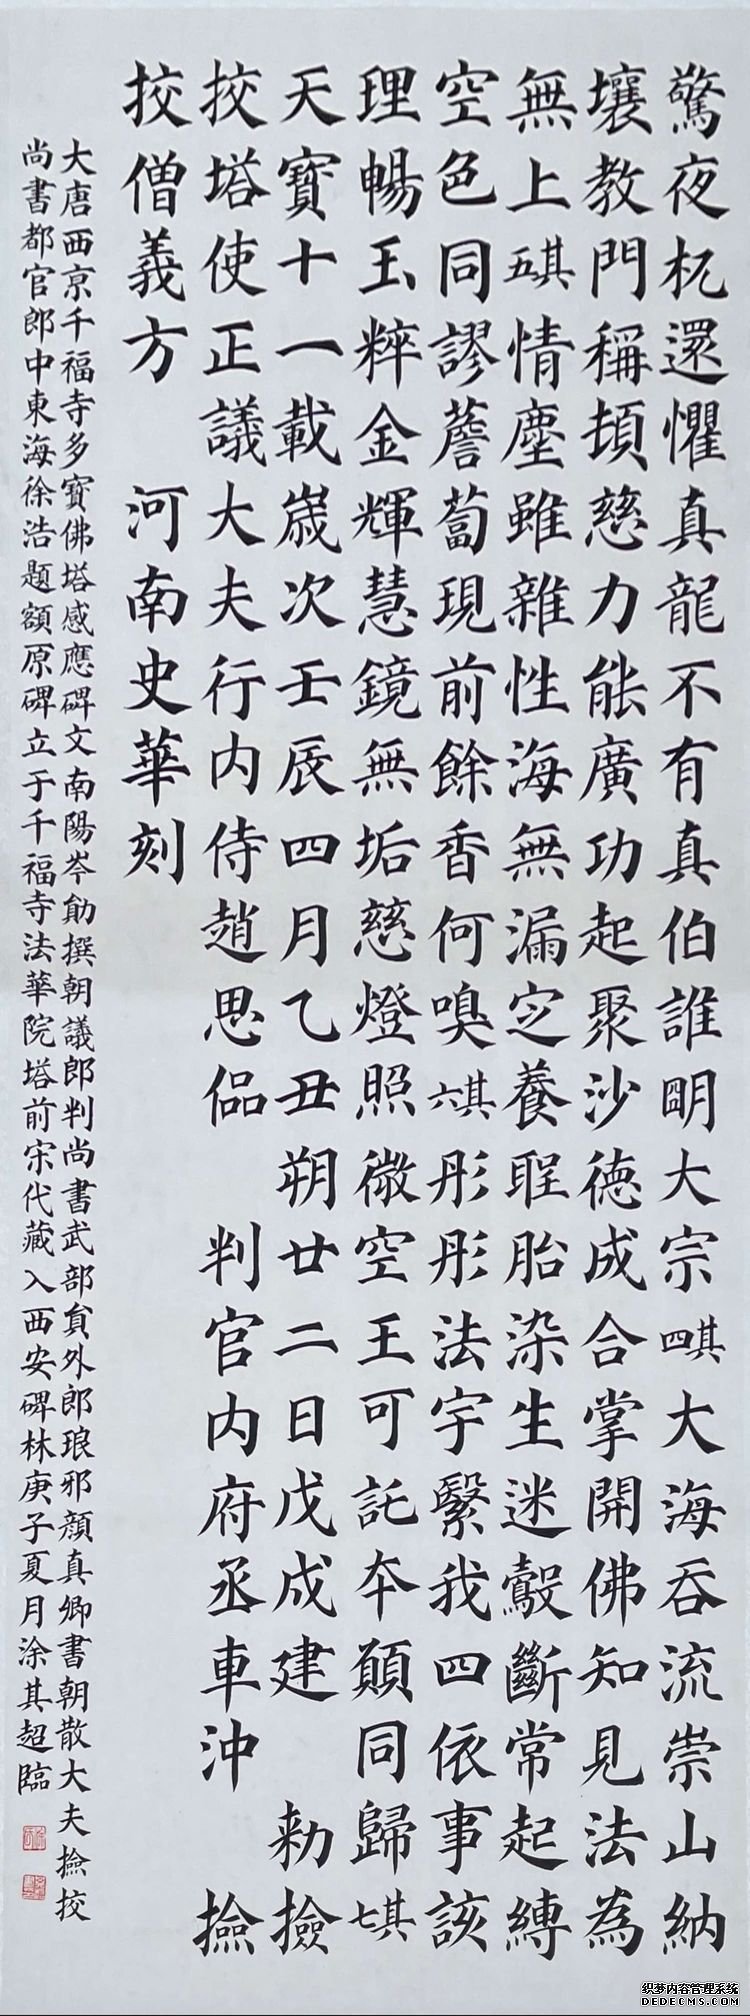 驚夜杌還懼真龍不有真伯誰眀大宗其四大海吞流崇山納
壤教門稱頓慈力能廣功起聚沙德成合掌開佛知見法為
無上其五情塵雖雜性海無漏定養聖胎染生迷鷇斷常起縛
空色同謬薝蔔現前餘香何嗅其六彤彤法宇繫我四依事該
理暢玉粹金輝慧鏡無垢慈燈照微空王可託本願同歸其七
天寶十一載歲次壬辰四月乙丑朔廿二日戊戌建 勑撿
挍塔使正議大夫行內侍趙思偘 判官內府丞車沖 撿
挍僧義方 河南史華刻
大唐西京千福寺多寶佛塔感應碑文南陽岑勛撰朝議郎判尚書武部員外郎琅邪顏真卿書朝散大夫撿挍
尚書都官郎中東海徐浩題額原碑立于千福寺法華院塔前宋代藏入西安碑林庚子夏月涂其超臨
织梦内容管理系统
DEDECMS.COM